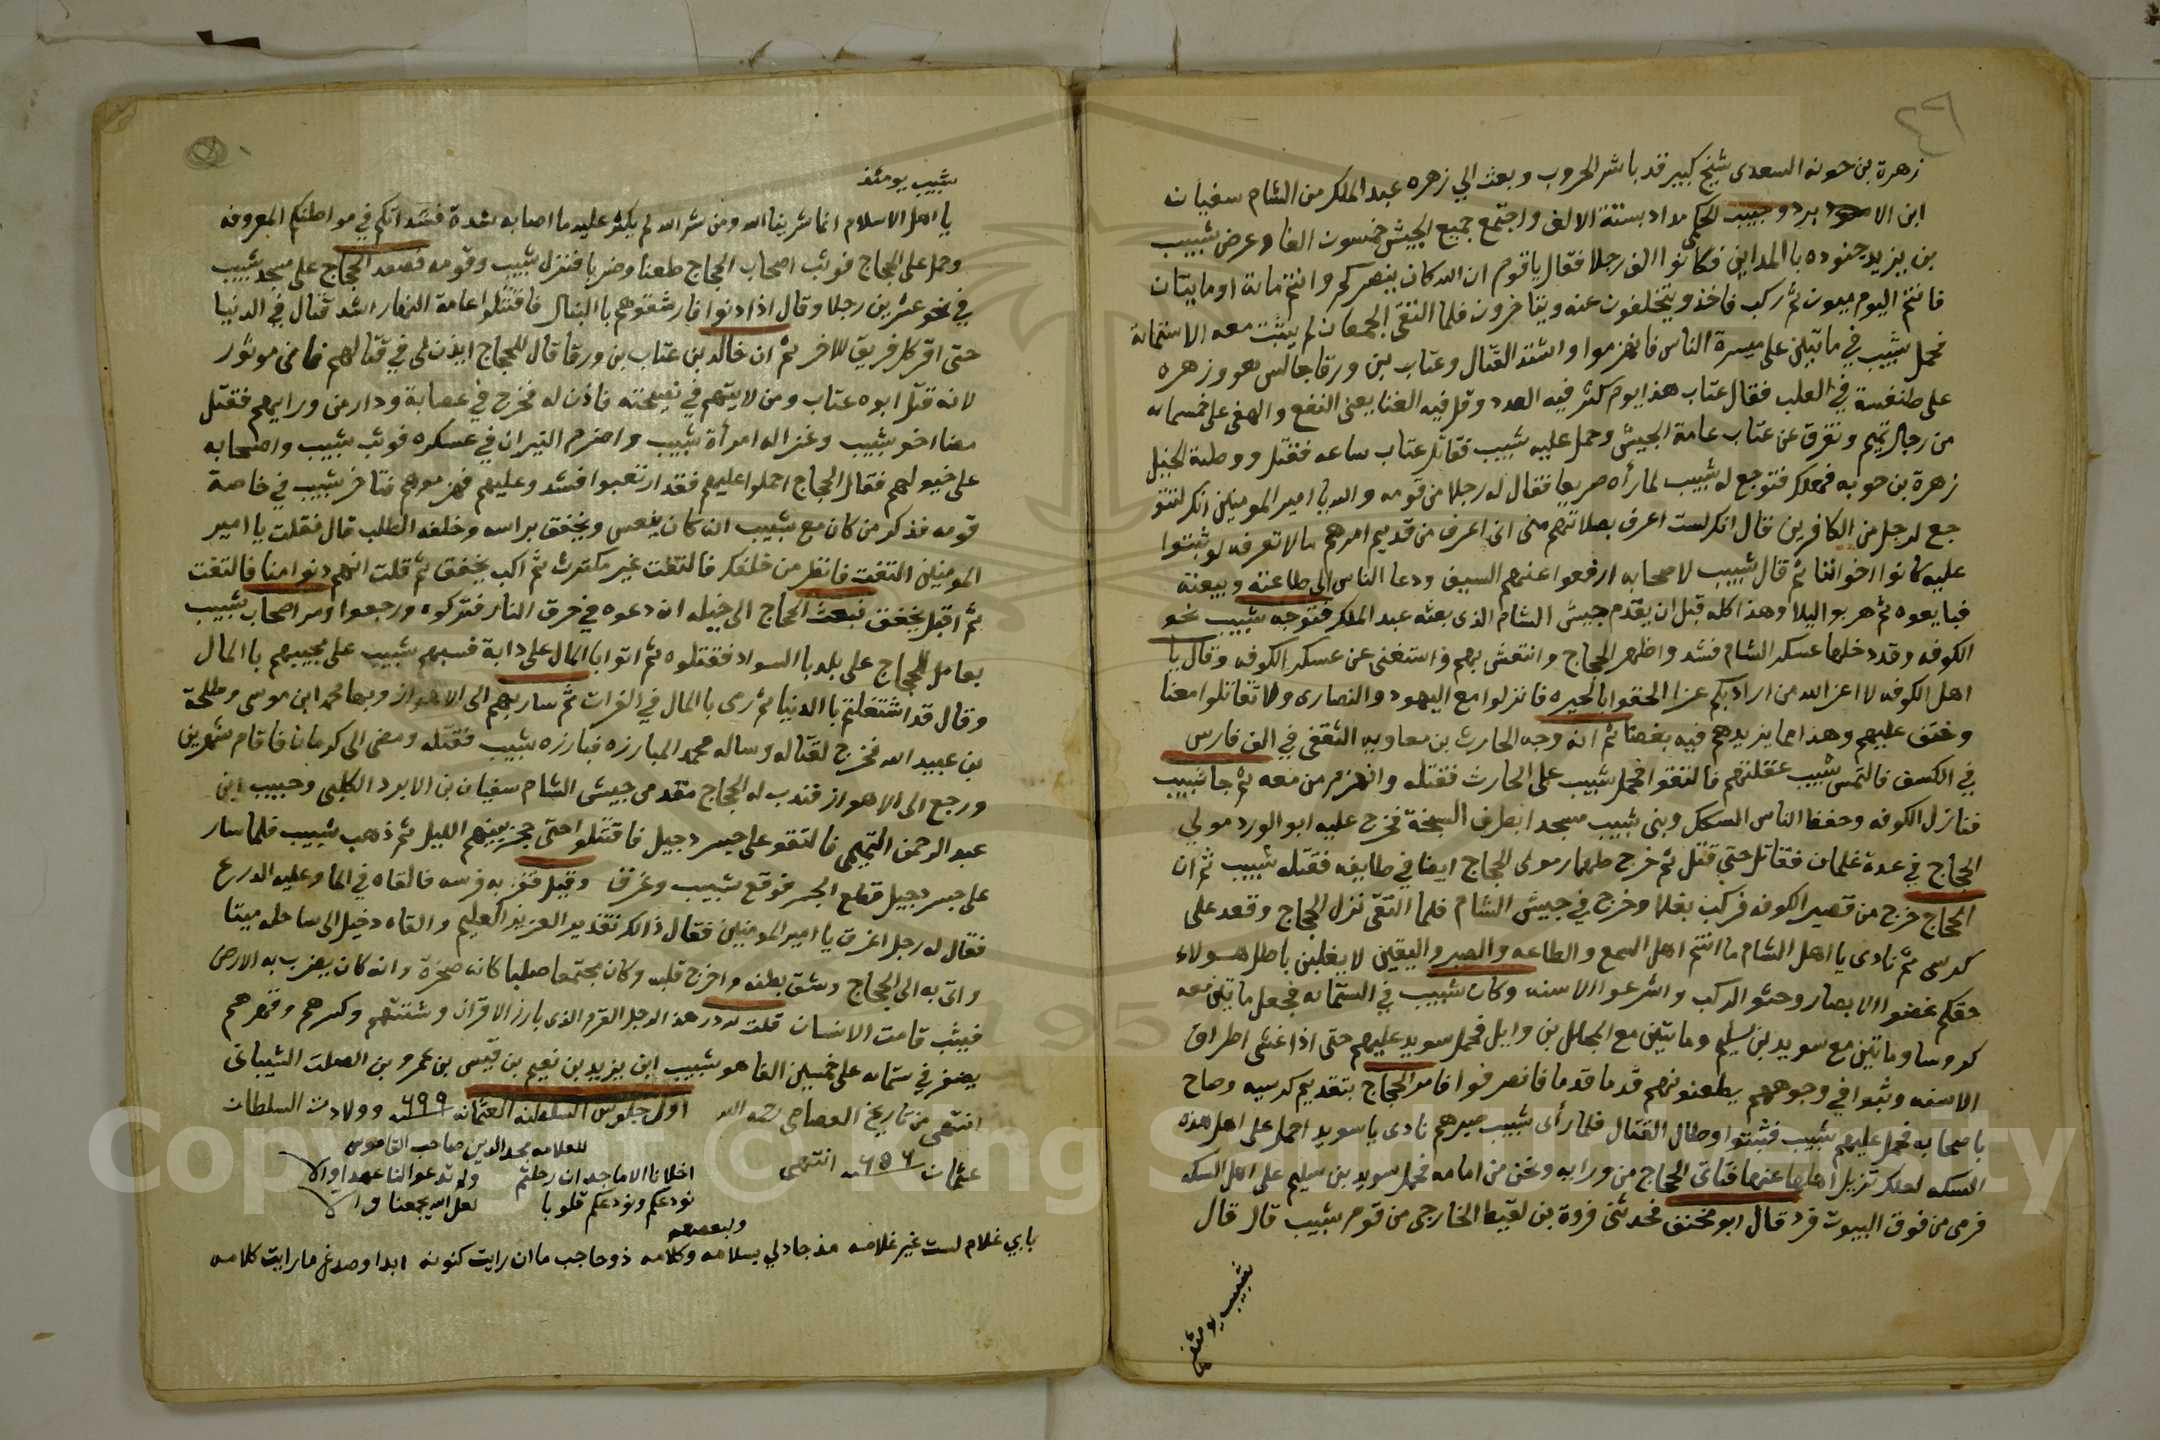 ٤٦
زهرة بن حونه السعدى شيخ كبير قد باشر الحروب وبعث الي زهره عبد الملك من الشام سفيان
ابن الابرد وحبيب الحكمى مداد بستة الالف واجتمع جميع الجيش خمسون الفا وعرض شبيب
بن يزيد جنوده با المداين فكانوا الف رجلا فقال ياقوم ان الله كان ينصركم وانتم ماىة او مايتان
فانتم اليوم ميون ثم ركب فاخذو يتخلفون عنه ويتاخرون فلما التقى الجمعان لم يثبت معه الا ستماىة
فحمل شبيب في مايتين على ميسرة الناس فانهزموا واشتد القتال وعتاب بن ورقا جالس هو وزهره
على طنفسة في القلب فقال عتاب هذا يوم كثر فيه العدد وقل فيه الغنا يعنى النفع والهفى على خمسمايه
من رجال تميم وتفرق عن عتاب عامة الجيش وحمل عليه شبيب فقاتل عتاب ساعه فقتل ووطية الخيل
زهرة بن حونه فهلك فتوجع له شبيب لما رأه صريعا فقال له رجلا من قومه والله يا امير المومنين انك لتتو
جع لرجل من الكافرين قال انك لست اعرف بصلاتهم منى انى اعرف من قديم امرهم مالا تعرفه لو ثبتوا
عليه كانوا اخواننا ثم قال شبيب لاصحابه ارفعوا عنهم السيف ودعا الناس الى طاعته وبيعته
فبايعوه ثم هربو اليلا وهذا كله قبل ان يقدم جيش الشام الذى بعثه عبد الملك فتوجه شبيب نحو
الكوفه وقد دخلها عسكر الشام فشد واظهر الحجاج وانتعش بهم واستغنى عن عسكر الكوفه وقال يا
اهل الكوفه لا اعز الله من اراد بكم عزا الحقوا بالحيره فانزلوا مع اليهود والنصارى ولا تقاتلوا معنا
وحنق عليهم وهذا مما يزيدهم فيه بغضا ثم انه وجه الحارث بن معاويه الثقفى في الف فارس
في الكسف فالتمس شبيب غفلتهم فالتقوا فحمل شبيب على الحارث فقتله وانهزم من معه ثم جا شبيب
فنازل الكوفه وحفظ الناس السكك وبنى شبيب مسجدا بطرف السبخة فخرج عليه ابو الورد مولي
الحجاج في عدة غلمان فقاتل حتى قتل ثم خرج طهمار مولى الحجاج ايضا في طايفه فقتله شبيب ثم ان
الحجاج خرج من قصير الكوفه فركب بغلا وخرج في جيش الشام فلما التقى نزل الحجاج وقعد على
كرسى ثم نادى يا اهل الشام ما انتم اهل السمع والطاعه والصبر واليقين لا يغلبن باطل هولاء
حقكم غضوا الابصار وحثو الركب واشرعوا الاسنه وكان شبيب في الستمايه فجعل مايتين معه
كروسا ومايتين مع سويد بن سليم ومايتين مع المحلل بن وايل فحمل سويد عليهم حتى اذا غشى اطراف
الاسنه وثبوا في وجوههم يطعنونهم قدما قدما فانصرفوا فامر الحجاج بتقديم كرسيه وصاح
باصحابه فحمل عليهم شبيب فثبتوا وطال القتال فلما رأى شبيب صبرهم نادى يا سويد احمل على اهل هذه
السكه لعلك تزيل اهلها عنها فتاتى الحجاج من ورايه ونحن من امامه فحمل سويد بن سليم على اهل السكه
فرمى من فوق البيوت فرد قال ابو مخنف فحدثنى فروة بن لقيط الخارجى من قوم شبيب قال قال
شبيب يومئذ
شبيب يومئذ
يا اهل الاسلام انما شرينا الله ومن شرى الله لم يكثر عليه ما اصابه شدة فشداتكم في مواطنكم المعروفه
وحمل على الحجاج فوثب اصحاب الحجاج طعنا وضربا فنزل شبيب وقومه فصعد الحجاج على مسجد شبيب
في نحو عشرين رجلا وقال اذا دنوا فارشقوهم با النبال فاقتتلوا عامة النهار اشد قتال في الدنيا
حتى اقر كل فريق للاخر ثم ان خالد بن عتاب بن ورقا قال للحجاج ايذن لى في قتالهم فانى موتور
لانه قتل ابوه عتاب ومن لايتهم في نصيحته فاذن له فخرج في عصابة ودار من ورايهم فقتل
مضا اخو شبيب وغزاله امرأة شبيب واضرم النيران في عسكره فوثب شبيب واصحابه
على خيولهم فقال الحجاج احملوا عليهم فقد ارتعبوا فشد وعليهم فهزموهم فتاخر شبيب في خاصة
قومه فذكر من كان مع شبيب انه كان ينعس ويخفق براسه وخلفه الطلب قال فقلت يا امير
المومنين التفت فانظر من خلفك فالتفت غير مكترث ثم اكب يخفق ثم قلت انهم دنوا منا فالتفت
ثم اقبل يخفق فبعث الحجاج الى خيله ان دعوه في حرق النار فتركوه ورجعوا ومر اصحاب شبيب
بعامل للحجاج على بلد با السواد فقتلوه ثم اتوا با المال على دابة فسبهم شبيب على مجيبهم با المال
وقال قد اشتغلتم با الدنيا ثم رمى با المال في الفرات ثم سار بهم الى الاهواز وبها محمد ابن موسى وطلحة
بن عبيد الله فخرج لقتاله وساله محمد المبارزه فبارزه شبيب فقتله ومضى الى كرمان فاقام شهرين
ورجع الى الاهواز فندب له الحجاج مقدمى جيش الشام سفيان بن الابرد الكلبى وحبيب ابن
عبد الرحمن التميمى فالتقو على جسر دجيل فاقتتلوا حتى حجز بينهم الليل ثم ذهب شبيب فلما سار
على جسر دجيل قطع الجسر فوقع شبيب وغرق وقيل قفز به فرسه فالقاه في الما وعليه الدرع
فقال له رجل اغرق يا امير المومنين فقال ذالك تقدير العزيز العليم والقاه دخيل الى ساحله ميتا
واتى به الى الحجاج وشق بطنه واخرج قلبه وكان مجتمعا صلبا كانه صخرة وانه كان يضرب به الارض
فيثب قامت الانسان قلت لله در هذا الرجل القرم الذى بارز الاقران وشتتهم وكسرهم وقهرهم
يضفر في ستمايه على خمسين الفا هو شبيب ابن يزيد بن نعيم بن قيس بن عمرو بن الصلت الشيبانى
انتهى من تاريخ العصامى رحمه الله اول جلوس السلطنه العثمانه ٦٩٩ وولادت السلطان
عثمان ٦٥٦ انتهى
للعلامه مجد الدين صاحب القاموس
اخلانا الاماجد ان رحلتم ولم تدعو النا عهدا والا
نودعكم ونودعكم قلوبا لعل الله يجمعنا والا
ولبعضهم
بابي غلام لست غير غلامه مذ جاد لي بسلامه وكلامه ذو حاجب ما ان رايت كنونه ابدا وصدغ ما رايت كلامه
Copyright © King Saud University
195